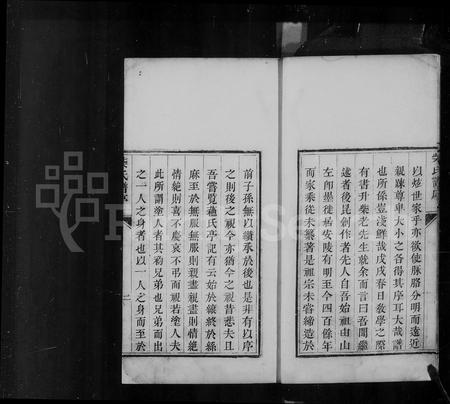 以炫世家乎亦欲使脉胳分明而遠近
親踈尊卑大小之各得其序耳大哉譜
也所係豈淺鮮哉戊戌春日敎學之際
有書升柴老先生就余而言曰吾聞繼
述者後昆創作者先人自吾始祖由山
左郎墨徙居安陵有明至今四百餘年
而家乘從未纂著是祖宗未嘗締造於
前子孫無以纘承於後也是非有以序
之則後之視今亦猶今之視昔悲夫且
吾嘗覧蘓氏亭記有云始於縗終於緦
麻至於無服無服則親盡視盡則情絶
情絶則喜不慶哀不弔而視若塗人夫
此所謂塗人者其初兄弟也兄弟而出
之一人之身者也以一人之身而至於
柴氏譜序
二